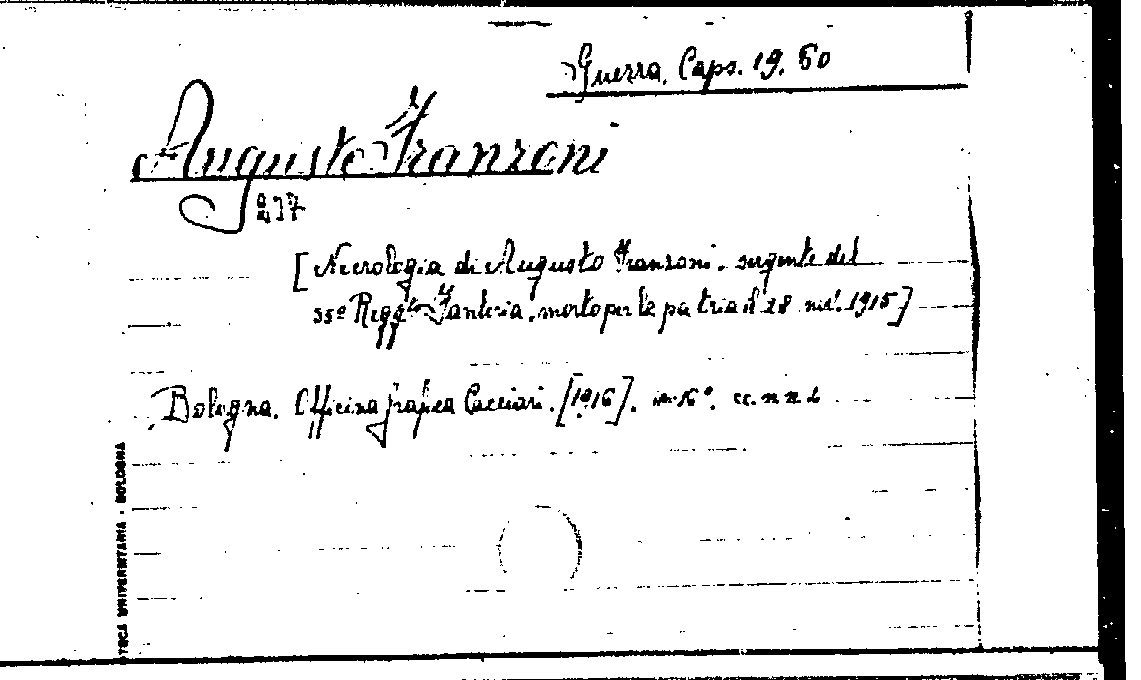 Guerra. Caps. 19. 60
Augusto Franzoni
[Necrologia di Augusto Franzoni. sergente del
35º Regg.to Fanteria, morto per la patria il 28 1915]
Bologna. Officina grafica Cacciari. [1916]. in-16º. cc. n n 2
TECA UNIVERSITARIA - BOLOGNA